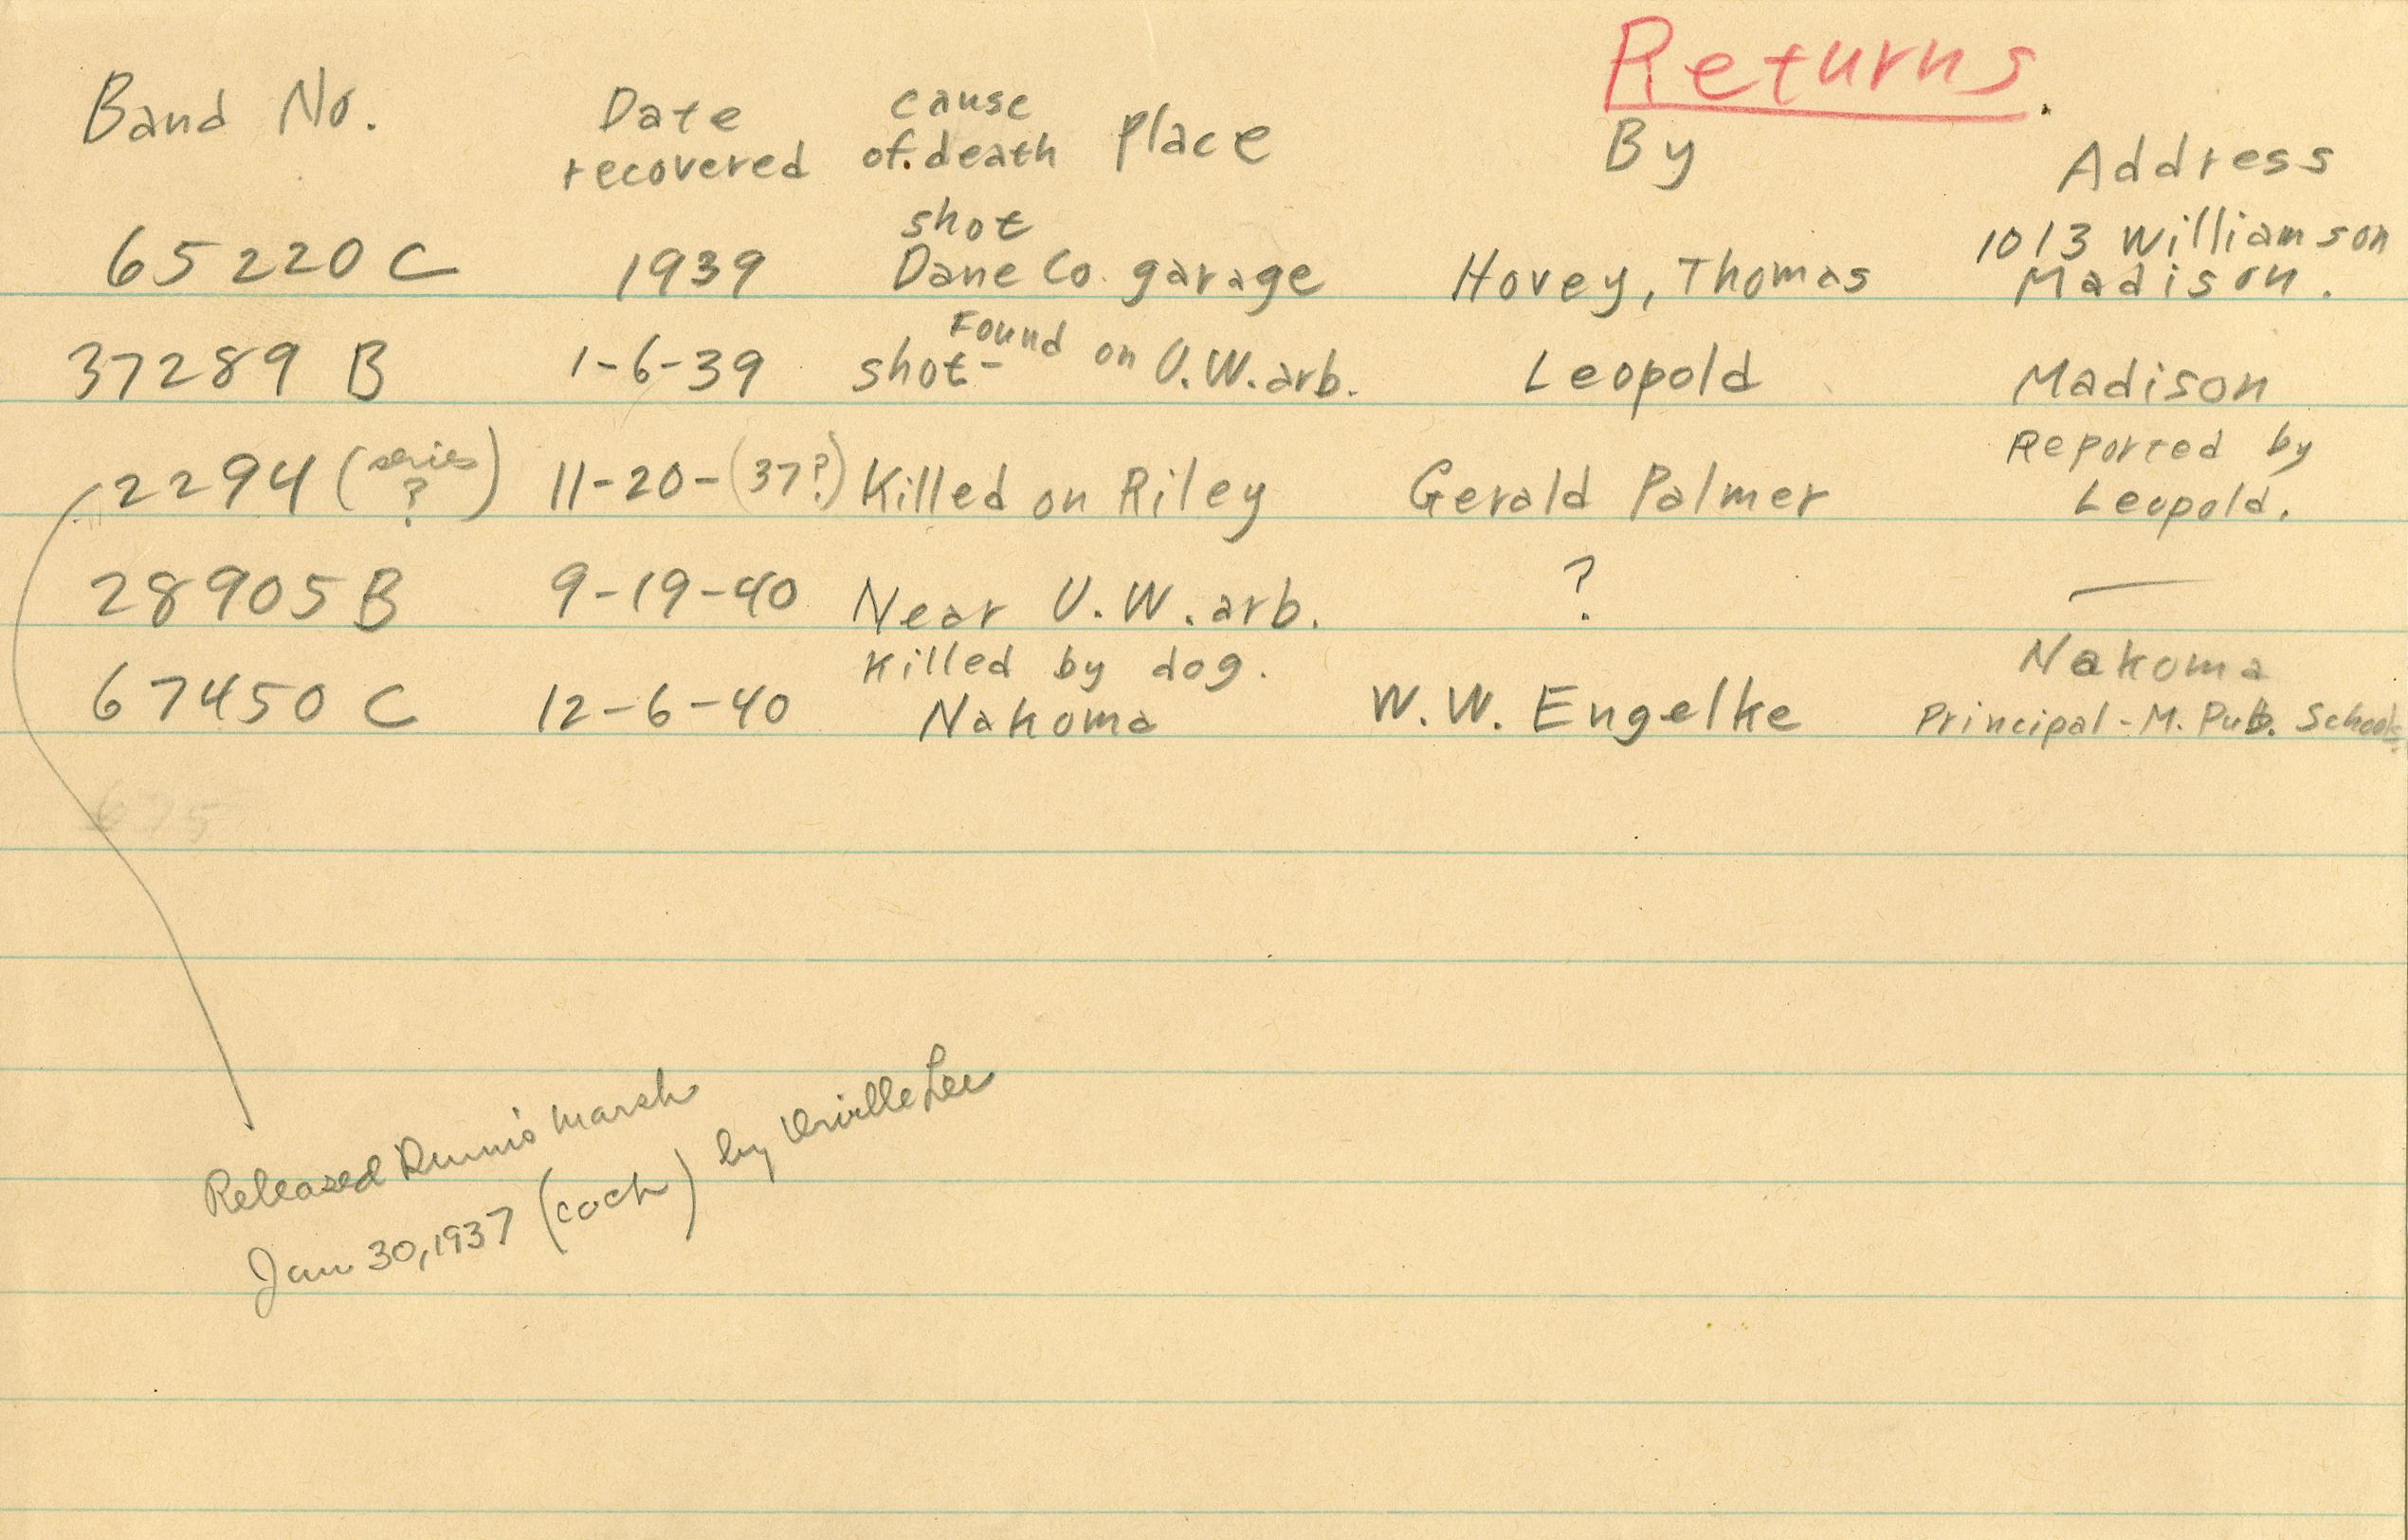 Returns.
Band No. Date recovered cause of death Place By Address
shot 1013 Williamson
65220 C 1939 Dane Co. garage Hovey, Thomas Madison.
37289 B 1-6-39 shot- Found on U.W. arb. Leopold Madison
2294 (series ?) 11-20-(37?) Killed on Riley Gerald Palmer Reported by Leopold.
28905 B 9-19-40 Near U.W. arb. ? —
Killed by dog. Nakoma
67450 C 12-6-40 Nakoma W.W. Engelke Principal - M. Pub. Schools
675
Released Dunn's Marsh
Jan 30, 1937 (cock) by Orville Lee